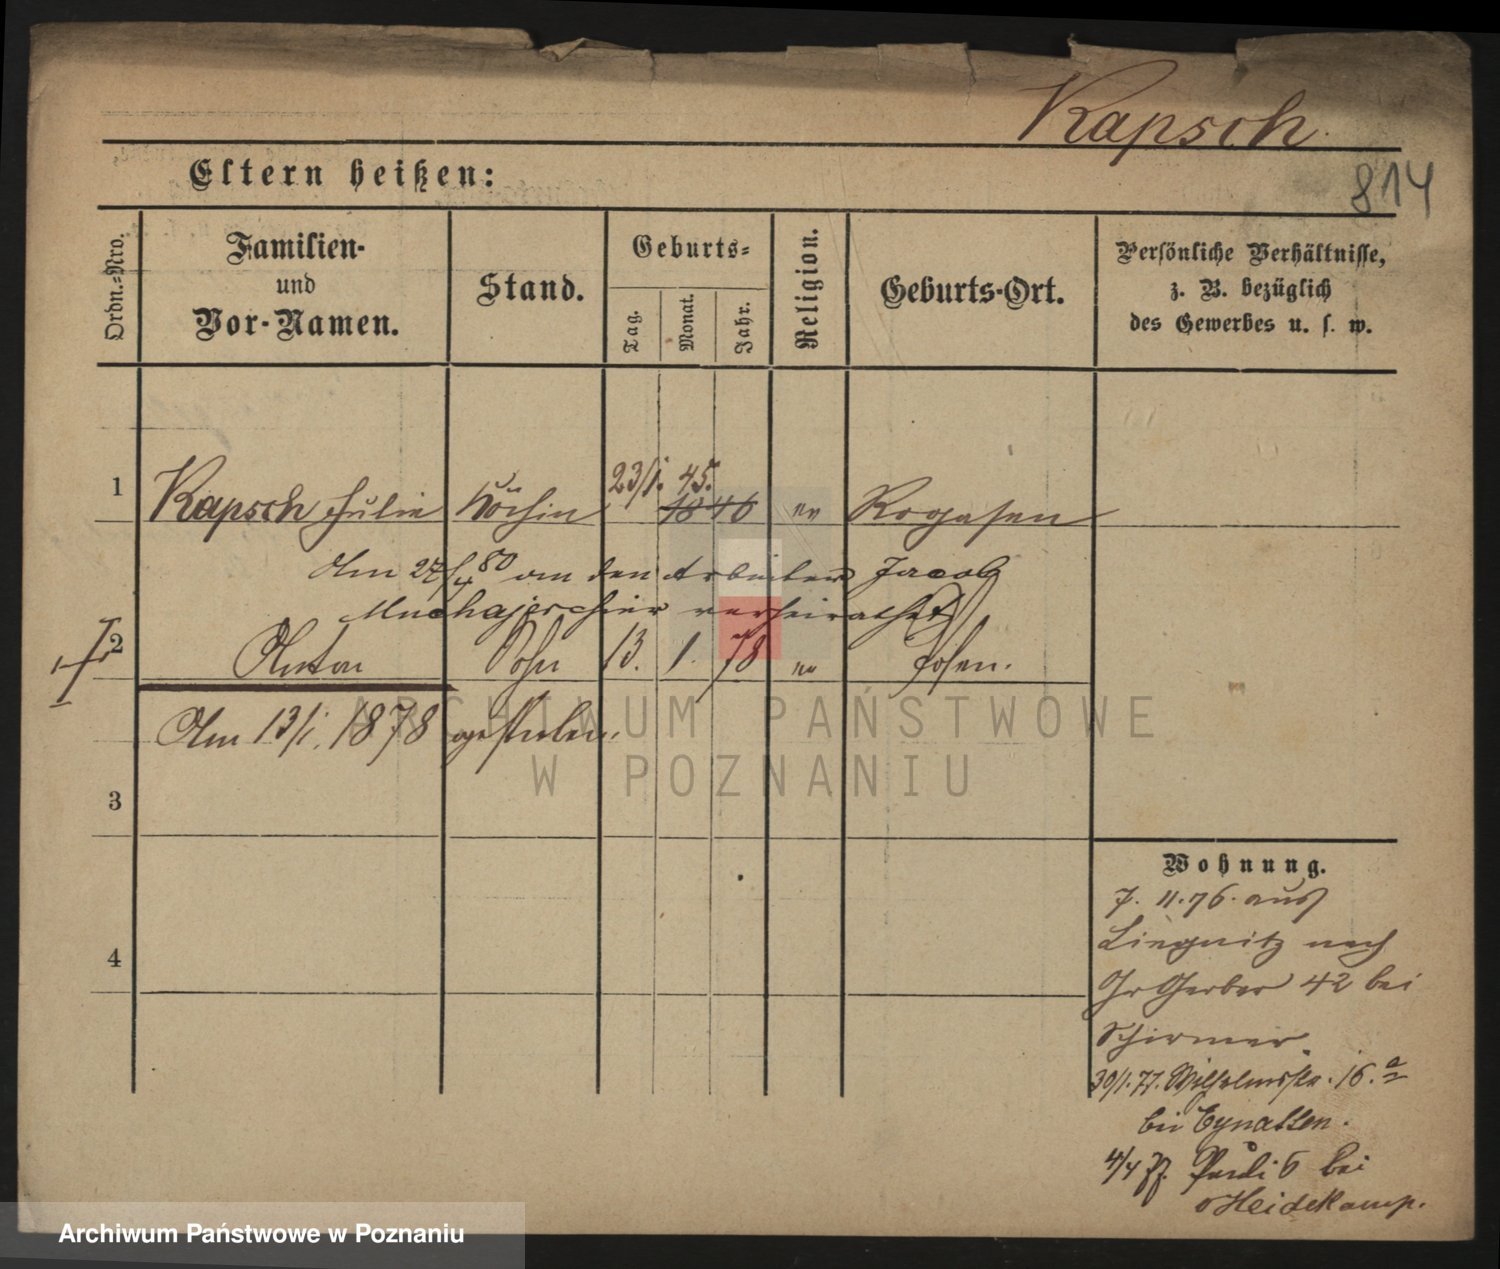 Kapsch
814
Eltern heißen:
Ordn.-Nro.
Familien-
und
Vor-Namen.
Stand.
Geburts-
Tag.
Monat.
Jahr.
Religion.
Geburts-Ort.
Persönliche Verhältnisse,
z. B. bezüglich
des Gewerbes u. s. w.
23/1. 45.
1 Kapsch Julie Köchin 1846 " Rogasen
Am 27/4 80 an den Arbeiter Jacob
verheirathet
2 Anton Sohn 13. 1. 78 " Posen.
Am 13/1. 1878 gestorben.
ARCHIWUM PAŃSTWOWE
W POZNANIU
3
4
Wohnung.
7. 11. 76. aus
Liegnitz nach
Gr Gerber 42 bei
Schirmer.
30/1. 77. Wilhelmsstr. 16.a
bei Eynatten.
4/4 77. Pauli 5 bei
Heidekamp.
Archiwum Państwowe w Poznaniu